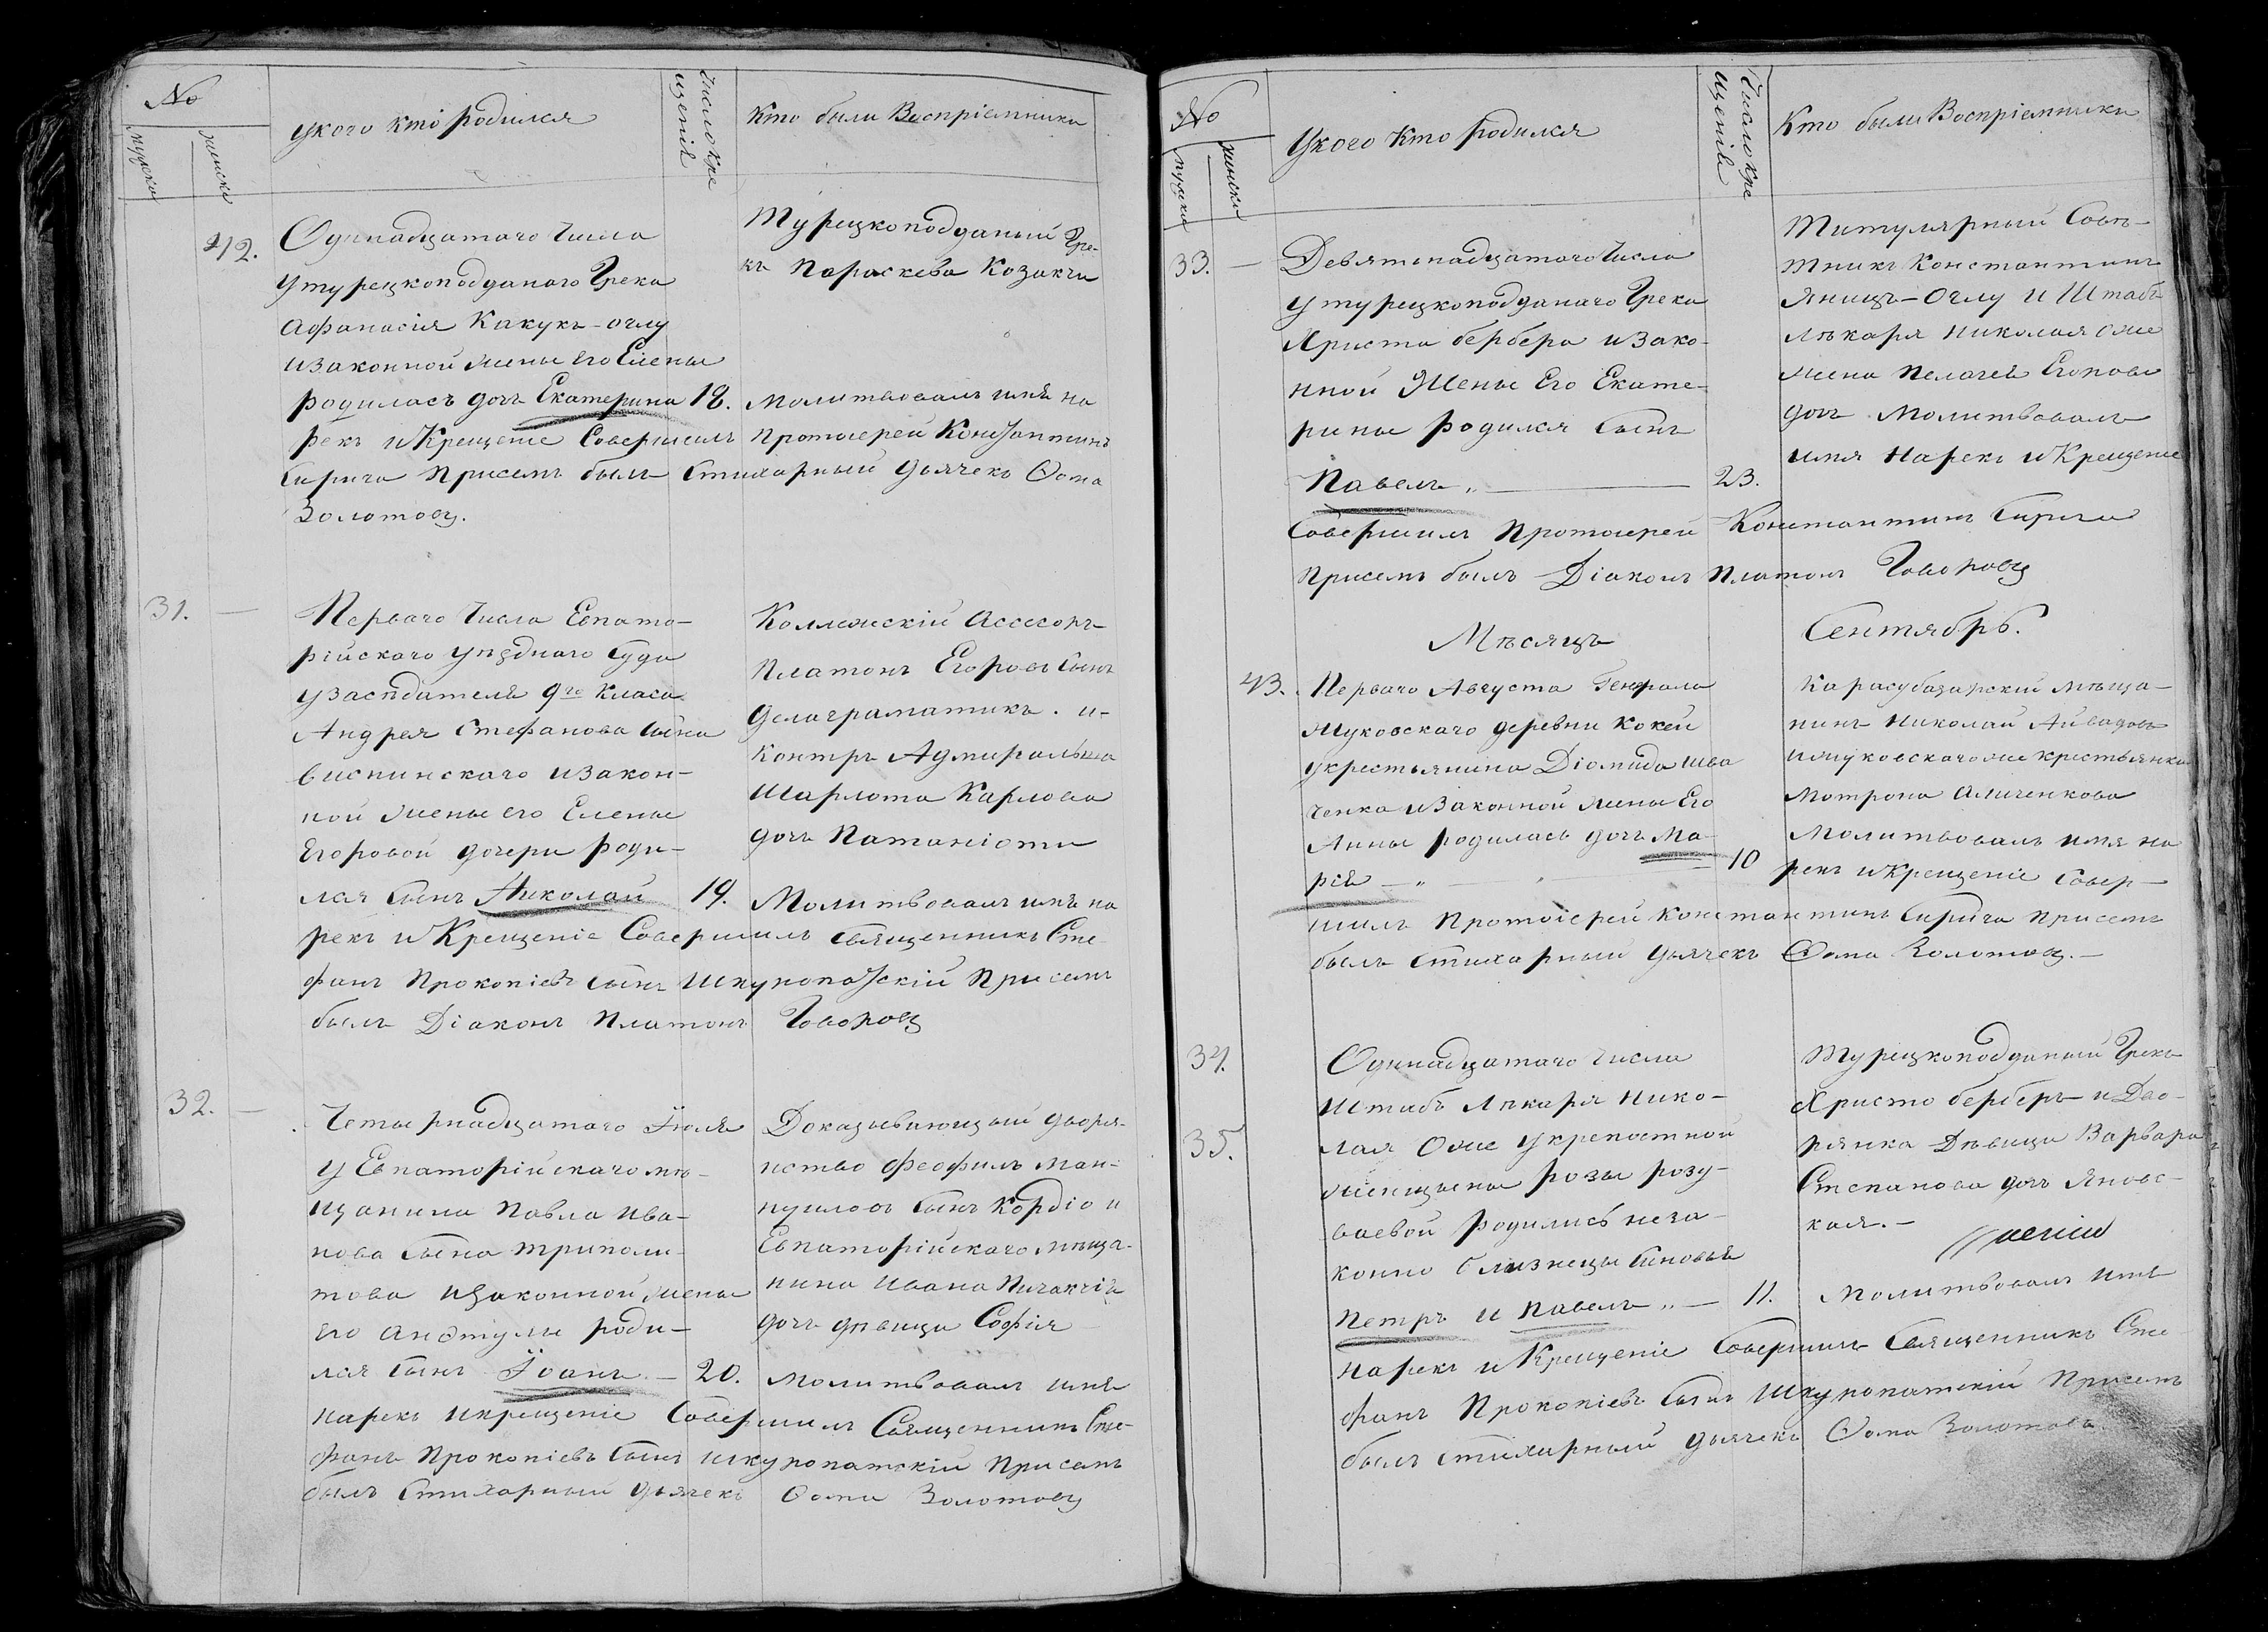 №
мужеска
женска
у кого кто родился
число кре
щенія
Кто были Воспріемники
42.
Одинадцатаго числа
у турецкоподданаго Грека
Афанасія Какукъ-оглу
и законной жены его Елены
родилась дочь Екатерина 18.
Турецкоподданый Гре-
къ Параскева Козакчи
молитвовалъ имя на
рекъ и Крещеніе Совершилъ протоіерей Константинъ
Спирича присемъ былъ Стихарный дьячекъ Ѳома
Золотовъ.
31. —
Перваго числа Евпато-
рійскаго уѣзднаго Суда
у засѣдателя 9го класа
Андрея Стефанова сына
виспинскаго и закон-
ной жены его Елены
Егоровой дочери роди-
лся сынъ Николай 19.
Коллежскій Ассесоръ
Платонъ Егоровъ сынъ
Делаграматикъ. и-
контръ Адмиральша
Шарлота Карлова
дочь Патаніоти
Молитвовалъ имя на
рекъ и Крещеніе Совершилъ Священникъ Сте-
фанъ Прокопіевъ сынъ Шкуропатскій Присемъ
былъ Діаконъ Платонъ Говоровъ
32. —
Четырнадцатаго Іюля
у Евпаторійскаго мѣ-
щанина Павла Ива-
нова сына триполи-
това и законной жены
его Анэтулы роди-
лся сынъ Іоанъ — 20.
Доказывающый дворя-
нство Феофилъ Ман-
нуиловъ сынъ Кордіо и
Евпаторійскаго мѣща-
нина Ивана Пичакчія
дочь дѣвица Софія
молитвовалъ имя
нарекъ и крещеніе Совершилъ Священникъ Сте-
фанъ Прокопіевъ сынъ шкуропатскій Присемъ
былъ Стихарный дьячекъ Ѳома Золотовъ
№
мужеска
женска
У кого кто родился
Число кре
щеніе
Кто были Воспріемники
33. —
Девятнадцатаго числа
у турецкоподданаго Грека
Христа бербера и зако-
нной Жены Его Екате-
рины родился сынъ
Павелъ „ — 23.
Титулярный Совѣ-
тникъ Константинъ
Яницъ-Оглу и Штабъ
лѣкаря Николая Оже
жена Пелагея Егорова
дочь Молитвовалъ
имя Нарекъ и Крещеніе
Совершилъ Протоіерей Константинъ Спирича
присемъ былъ Діаконъ Платонъ Говоровъ
Мѣсяцъ Сентябрь.
43.
Перваго Августа Генерала
Жуковскаго деревни Кокей
у крестьянина Діомида Ива
ченка и законной жены Его
Анны родилась дочь Ма-
рія — „ — 10
Карасубазарскій мѣща-
нинъ Николай Айвадовъ
и жуковскаго же крестьянка
Мотрона Аличенкова
Молитвовалъ имя на
рекъ и Крещеніе Совер-
шилъ Протоіерей Константинъ Спирича Присемъ
былъ Стихарный дьячекъ Ѳома Золотовъ. —
34.
35.
Одинадцатаго числа
Штабъ Лѣкаря Нико-
лая Оже у крепостной
женщыны розы розу-
ваевой родились неза-
конно близнецы сыновья
Петръ и Павелъ „ — 11.
Турецкоподданый Грекъ
Христо берберъ и Дво-
рянка Дѣвица Варвара
Степанова дочь Яновс-
кая. —
Молитвовалъ имя
нарекъ и Крещеніе Совершилъ Священникъ Сте
фанъ Прокопіевъ сынъ Шкуропатскій Присемъ
былъ стихарный дьячекъ Ѳома Золотовъ